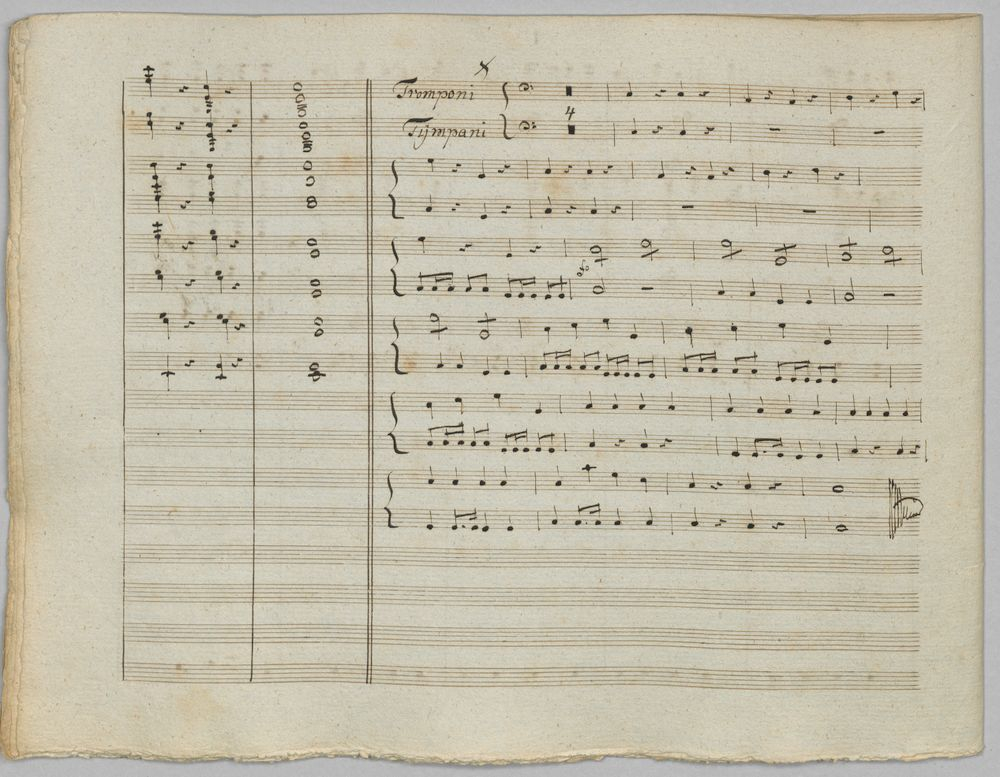 Tromponi
4
Tijmpani